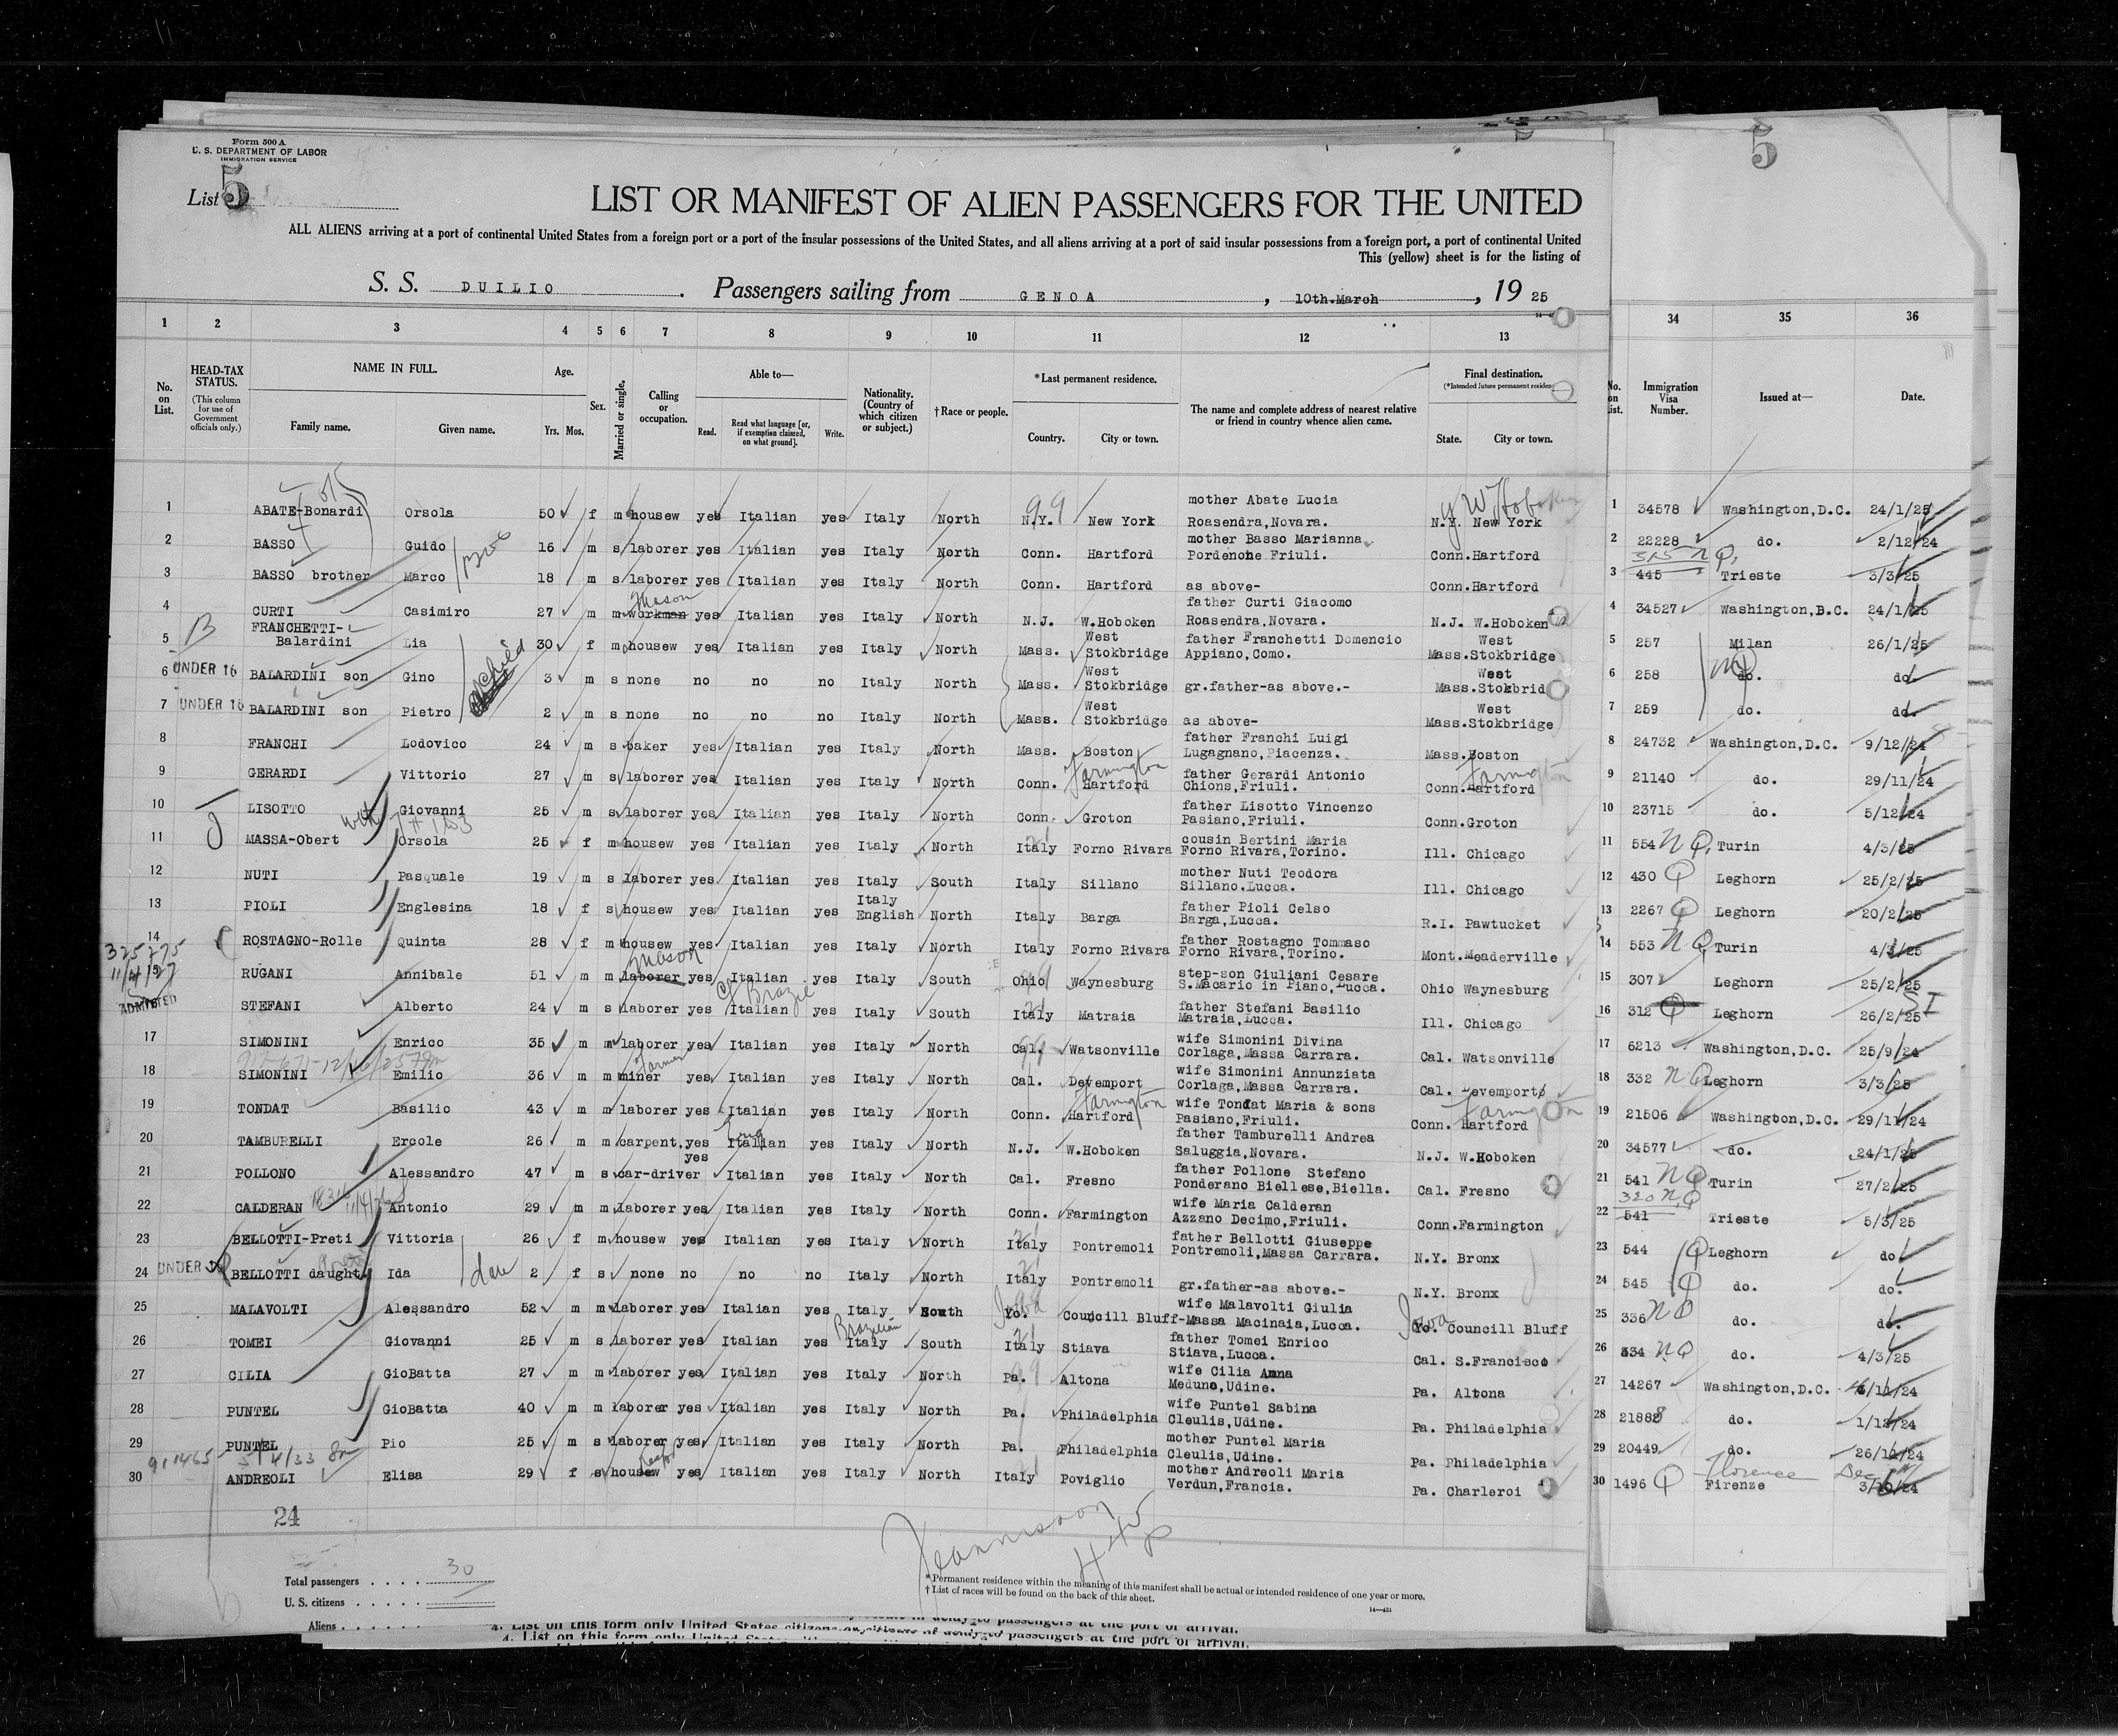 Form 500 A
U. S. DEPARTMENT OF LABOR
IMMIGRATION SERVICE
List 5
5
LIST OR MANIFEST OF ALIEN PASSENGERS FOR THE UNITED
ALL ALIENS arriving at a port of continental United States from a foreign port or a port of the insular possessions of the United States, and all aliens arriving at a port of said insular possessions from a foreign port, a port of continental United
This (yellow) sheet is for the listing of
S. S. DUILIO. Passengers sailing from GENOA, 10th.March, 19 25
1 2 3 4 5 6 7 8 9 10 11 12 13 34 35 36
No. on List. HEAD-TAX STATUS. (This column for use of Government officials only.) NAME IN FULL. Family name. Given name. Age. Yrs. Mos. Sex. Married or single. Calling or occupation. Able to— Read. Read what language [or, if exemption claimed, on what ground]. Write. Nationality. (Country of which citizen or subject.) †Race or people. *Last permanent residence. Country. City or town. The name and complete address of nearest relative or friend in country whence alien came. Final destination. (*Intended future permanent residence) State. City or town. No. on List. Immigration Visa Number. Issued at— Date.
1 ABATE-Bonardi Orsola 50 f m housew yes Italian yes Italy North N.Y. 99 New York mother Abate Lucia Roasendra,Novara. N.Y. New York W Hoboken 1 34578 Washington,D.C. 24/1/25
2 BASSO Guido 16 m s laborer yes Italian yes Italy North Conn. Hartford mother Basso Marianna Pordenone Friuli. Conn.Hartford 2 22228 do. 2/12/24
3 BASSO brother Marco 18 m s laborer yes Italian yes Italy North Conn. Hartford as above- Conn.Hartford 3 445 315 NQ Trieste 3/3/25
4 CURTI Casimiro 27 m m workman Mason yes Italian yes Italy North N.J. W.Hoboken father Curti Giacomo Roasendra,Novara. N.J. W.Hoboken 4 34527 Washington,B.C. 24/1/25
5 FRANCHETTI-Balardini Lia 30 f m housew yes Italian yes Italy North Mass. West Stokbridge father Franchetti Domencio Appiano,Como. Mass. West Stokbridge 5 257 Milan 26/1/25
6 UNDER 16 BALARDINI son Gino child 3 m s none no no no Italy North Mass. West Stokbridge gr.father-as above.- Mass. West Stokbrid 6 258 do. do
7 UNDER 16 BALARDINI son Pietro 2 m s none no no no Italy North Mass. West Stokbridge as above- Mass. West Stokbridge 7 259 do. do.
8 FRANCHI Lodovico 24 m s baker yes Italian yes Italy North Mass. Boston father Franchi Luigi Lugagnano,Piacenza. Mass.Boston 8 24732 Washington,D.C. 9/12/24
9 GERARDI Vittorio 27 m s laborer yes Italian yes Italy North Conn. Hartford Farmington father Gerardi Antonio Chions,Friuli. Conn.Hartford Farmington 9 21140 do. 29/11/24
10 LISOTTO Giovanni 25 m s laborer yes Italian yes Italy North Conn. Groton father Lisotto Vincenzo Pasiano,Friuli. Conn.Groton 10 23715 do. 5/12/24
11 MASSA-Obert Orsola 25 f m housew yes Italian yes Italy North Italy Forno Rivara cousin Bertini Maria Forno Rivara,Torino. Ill. Chicago 11 554 NQ Turin 4/3/25
12 NUTI Pasquale 19 m s laborer yes Italian yes Italy South Italy Sillano mother Nuti Teodora Sillano.Lucca. Ill. Chicago 12 430 Q Leghorn 25/2/25
13 PIOLI Englesina 18 f s housew yes Italian yes Italy English North Italy Barga father Pioli Celso Barga,Lucca. R.I. Pawtucket 13 2267 Q Leghorn 20/2/25
14 ROSTAGNO-Rolle Quinta 28 f m housew yes Italian yes Italy North Italy Forno Rivara father Rostagno Tommaso Forno Rivara,Torino. Mont.Meaderville 14 553 NQ Turin 4/3/25
325275
11/4/27
15 RUGANI Annibale 51 m m laborer Mason yes Italian yes Italy South Ohio Waynesburg step-son Giuliani Cesare S.Macario in Piano,Lucca. Ohio Waynesburg 15 307 Leghorn 25/2/25
ADMITTED STEFANI Alberto 24 m s laborer yes Italian yes Italy South Italy Matraia father Stefani Basilio Matraia,Lucca. Ill. Chicago 16 312 Q Leghorn 26/2/25 SI
17 SIMONINI Enrico 35 m m laborer yes Italian yes Italy North Cal. Watsonville wife Simonini Divina Corlaga,Massa Carrara. Cal. Watsonville 17 6213 Washington,D.C. 25/9/24
18 SIMONINI Emilio 36 m m miner Farmer yes Italian yes Italy North Cal. Devemport wife Simonini Annunziata Corlaga,Massa Carrara. Cal. Devemport 18 332 NQ Leghorn 3/3/25
19 TONDAT Basilio 43 m m laborer yes Italian yes Italy North Conn. Hartford Farmington wife Tondat Maria & sons Pasiano,Friuli. Conn. Hartford Farmington 19 21506 Washington,D.C. 29/11/24
20 TAMBURELLI Ercole 26 m m carpent. yes Italian Eng yes Italy North N.J. W.Hoboken father Tamburelli Andrea Saluggia,Novara. N.J. W.Hoboken 20 34577 do. 24/1/25
21 POLLONO Alessandro 47 m s car-driver yes Italian yes Italy North Cal. Fresno father Pollone Stefano Ponderano Biellese,Biella. Cal. Fresno 21 541 NQ Turin 27/2/25
22 CALDERAN Antonio 29 m m laborer yes Italian yes Italy North Conn. Farmington wife Maria Calderan Azzano Decimo,Friuli. Conn.Farmington 22 541 320 NQ Trieste 5/3/25
23 BELLOTTI-Preti Vittoria 26 f m housew yes Italian yes Italy North Italy Pontremoli father Bellotti Giuseppe Pontremoli,Massa Carrara. N.Y. Bronx 23 544 Q Leghorn do
24 UNDER BELLOTTI daught Ida dau 2 f s none no no no Italy North Italy Pontremoli gr.father-as above.- N.Y. Bronx 24 545 Q do. do.
25 MALAVOLTI Alessandro 52 m m laborer yes Italian yes Italy South Yo. Iowa Councill Bluff-wife Malavolti Giulia Massa Macinaia,Lucca. Yo. Iowa Councill Bluff 25 336 NQ do. do.
26 TOMEI Giovanni 25 m s laborer yes Italian yes Italy Brazilian South Italy Stiava father Tomei Enrico Stiava,Lucca. Cal. S.Francisco 26 334 NQ do. 4/3/25
27 CILIA GioBatta 27 m m laborer yes Italian yes Italy North Pa. Altona wife Cilia Anna Meduno,Udine. Pa. Altona 27 14267 Washington,D.C. /11/24
28 PUNTEL GioBatta 40 m m laborer yes Italian yes Italy North Pa. Philadelphia wife Puntel Sabina Cleulis,Udine. Pa. Philadelphia 28 21888 do. 1/12/24
29 PUNTEL Pio 25 m s laborer yes Italian yes Italy North Pa. Philadelphia mother Puntel Maria Cleulis,Udine. Pa. Philadelphia 29 20449 do. 26/11/24
911465 5/4/33
30 ANDREOLI Elisa 29 f s housew yes Italian yes Italy North Italy Poviglio mother Andreoli Maria Verdun,Francia. Pa. Charleroi 30 1496 Q Firenze Florence 3/10/24 Dec
24
Total passengers . . . . 30
U. S. citizens . . . . .
Aliens . . . . . .
*Permanent residence within the meaning of this manifest shall be actual or intended residence of one year or more.
†List of races will be found on the back of this sheet.